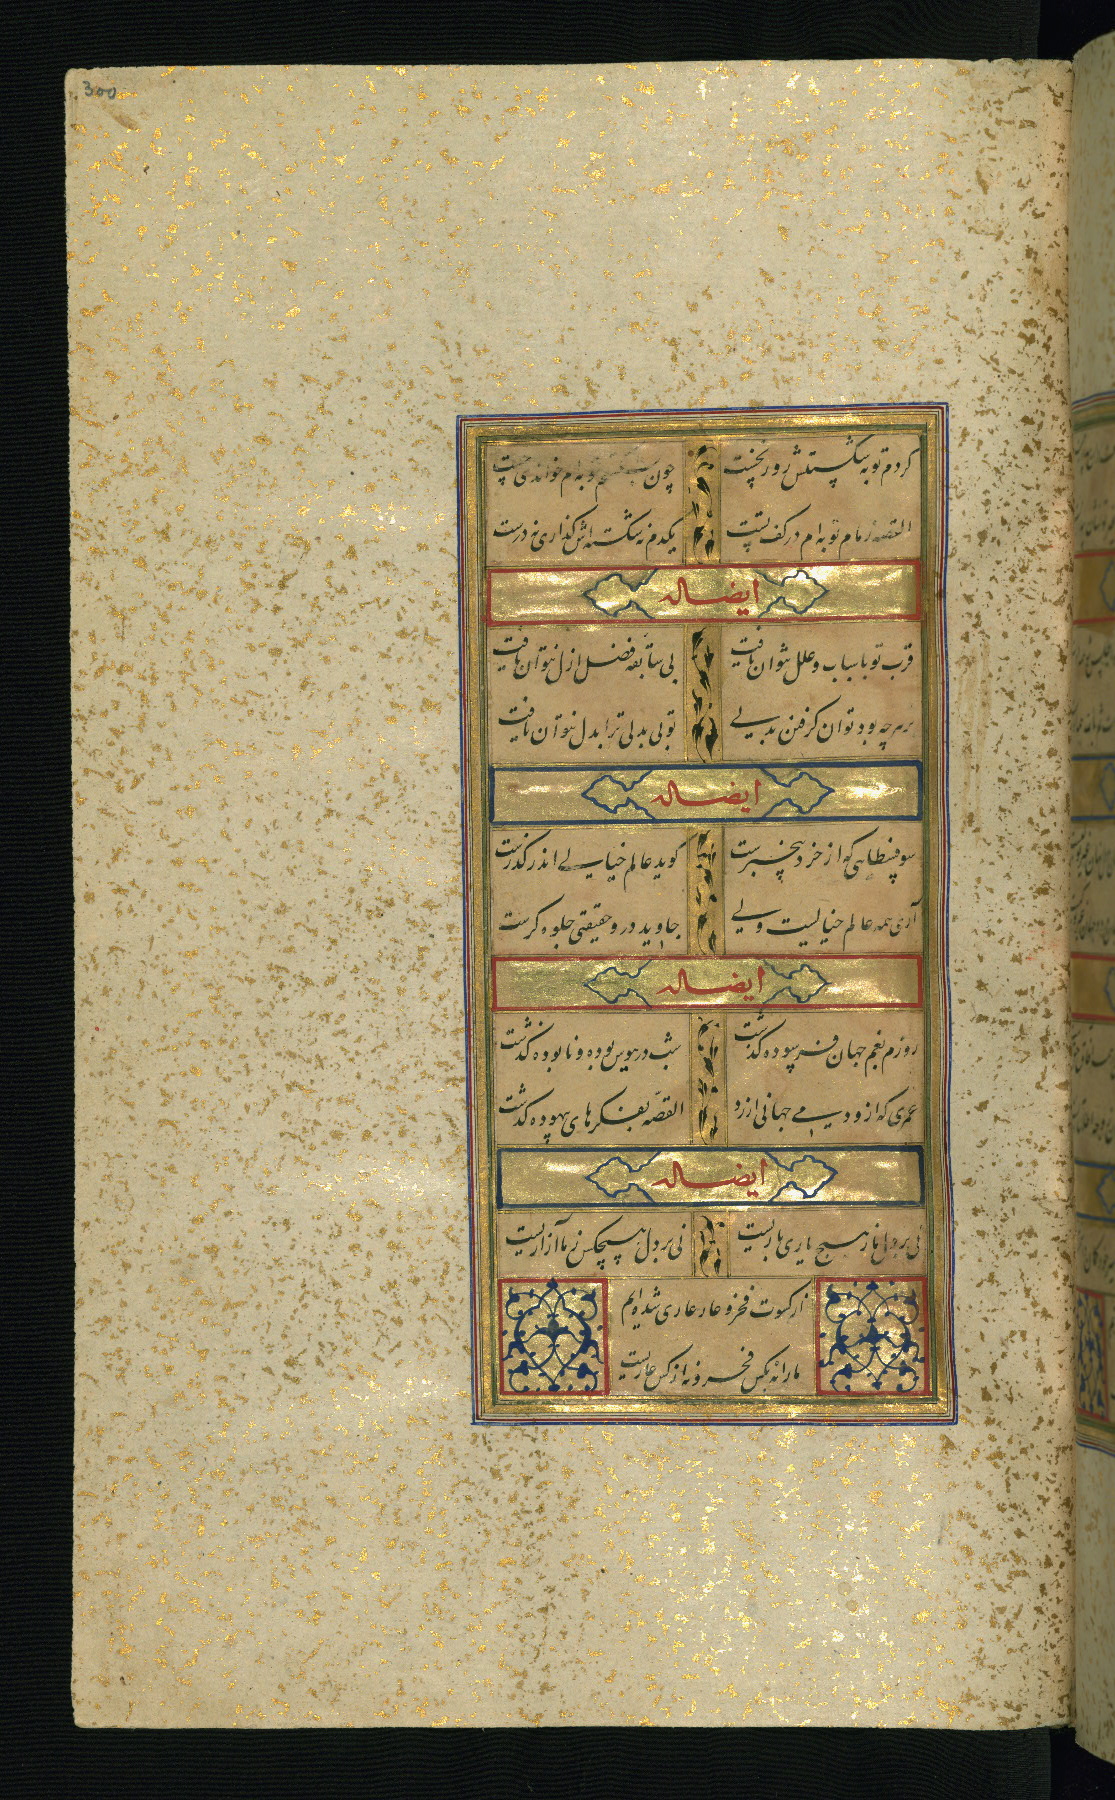 300
کردم توبه شکستیش روز نخست چون بشکستم بتوبه‌ام خواندی چست
القصه زمام توبه‌ام در کف تست یکدم نه شکسته‌اش گذاری نه درست
ایضا له
قرب تو باسباب و علل نتوان یافت بی سابقه فضل ازل نتوان یافت
بر هر چه بود توان گرفتن بدلی تو بی بدلی ترا بدل نتوان یافت
ایضا له
سوفسطایی که از خرد بیخبرست گوید عالم خیالی اندر گذرست
آری همه عالم خیالیست ولی جاوید درو حقیقتی جلوه گرست
ایضا له
روزم بغم جهان فرسوده گذشت شب در هوس بوده و نابوده گذشت
عمری که ازو دمی جهانی ارزد القصه بفکرهای بیهوده گذشت
ایضا له
نی بر دل ما ز هیچ یاری باریست نی بر دل هیچکس ز ما آزاریست
از کسوت فخر و عار عاری شده‌ایم
ما را نه بکس فخر و نه از کس عاریست